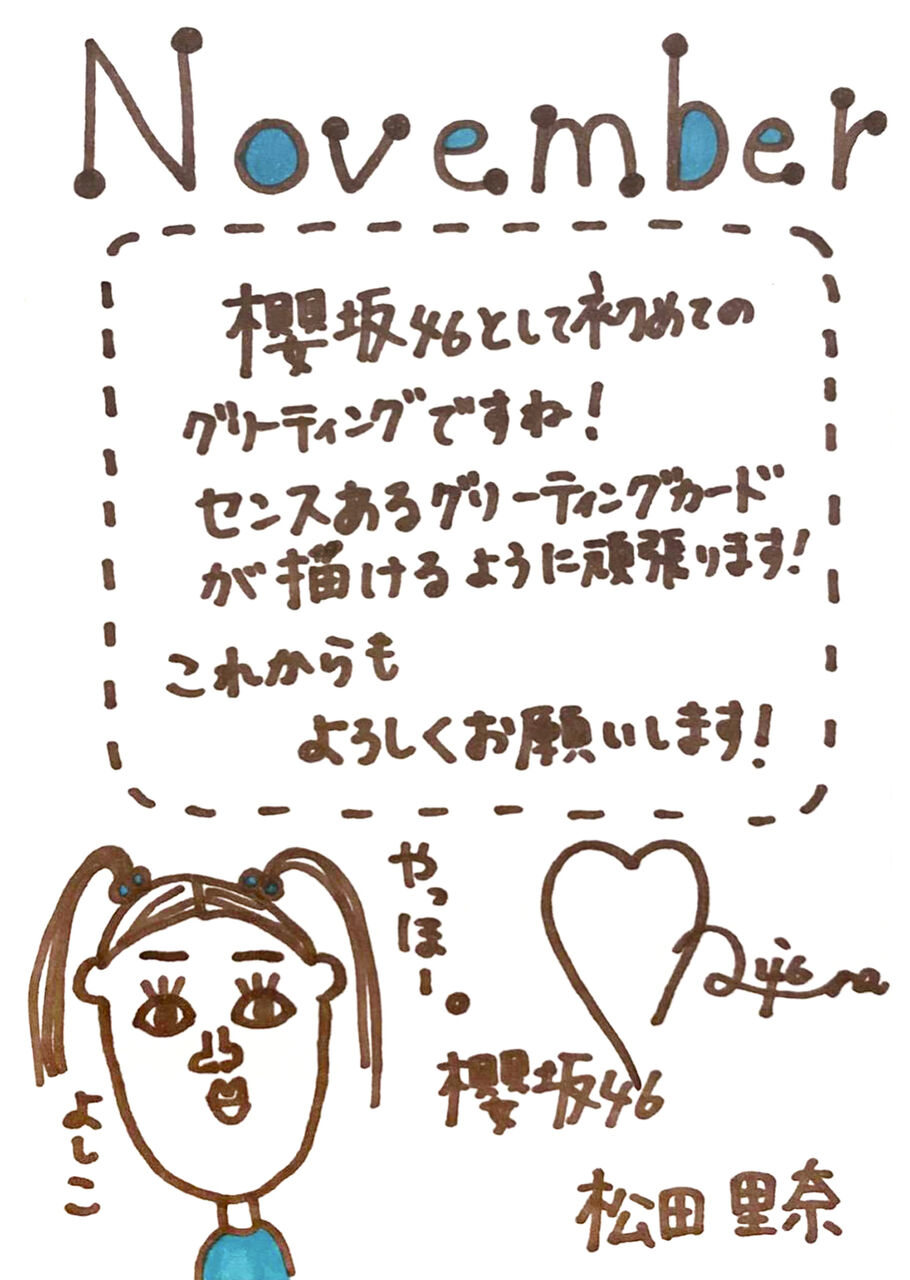 November
櫻坂46として初めての
グリーティングですね!
センスあるグリーティングカード
が描けるように頑張ります!
これからも
よろしくお願いします!
やっほー。
よしこ
櫻坂46
松田里奈